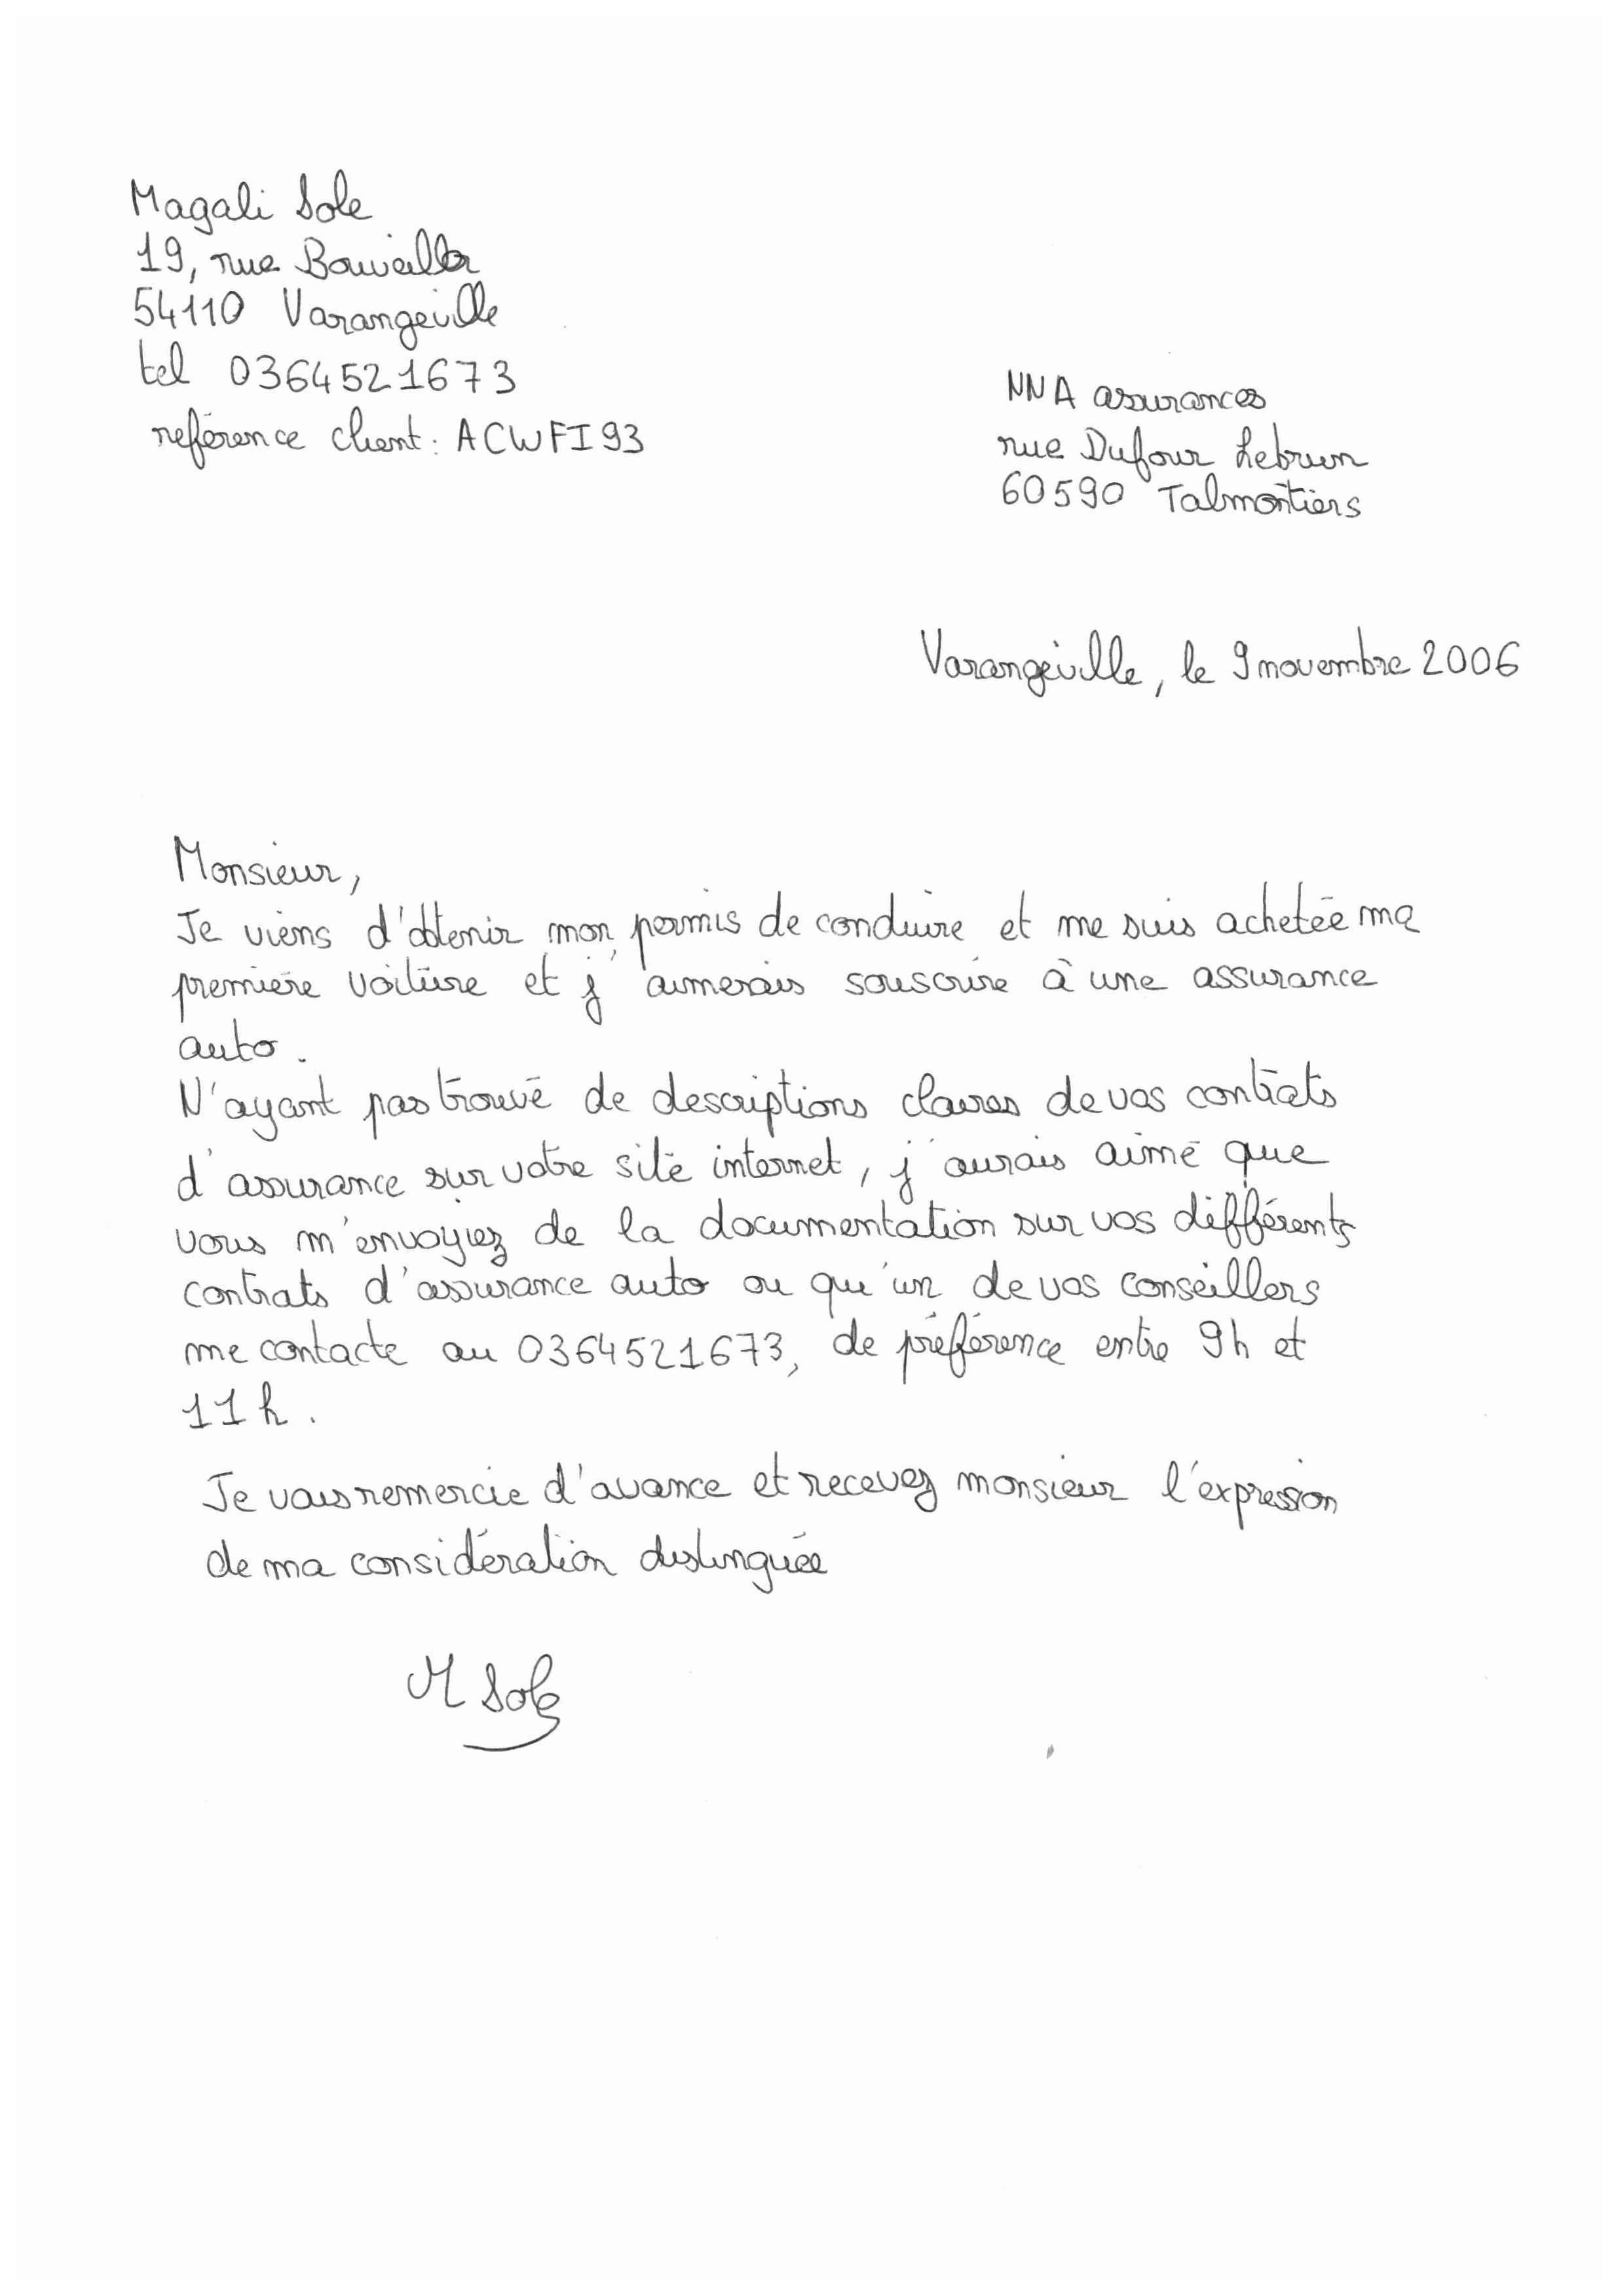 Magali Sole
19, rue
54110 Varangeville
tel 0364521673
reférence client : ACWFI93
NNA assurances
rue Dufour Lebrun
60590 Talmontiers
Varangeville, le 9 novembre 2006
Monsieur,
Je viens d'obtenir mon permis de conduire et me suis achetée ma
première voiture et j'aimerais souscrire à une assurance
auto.
N'ayant pas trouvé de descriptions claires de vos contrats
d'assurance sur votre site internet, j'aurais aimé que
vous m'envoyiez de la documentation sur vos différents
contrats d'assurance auto ou qu'un de vos conseillers
me contacte au 0364521673, de préférence entre 9h et
11h.
Je vous remercie d'avance et recevez monsieur l'expression
de ma considération distinguée
M Sole